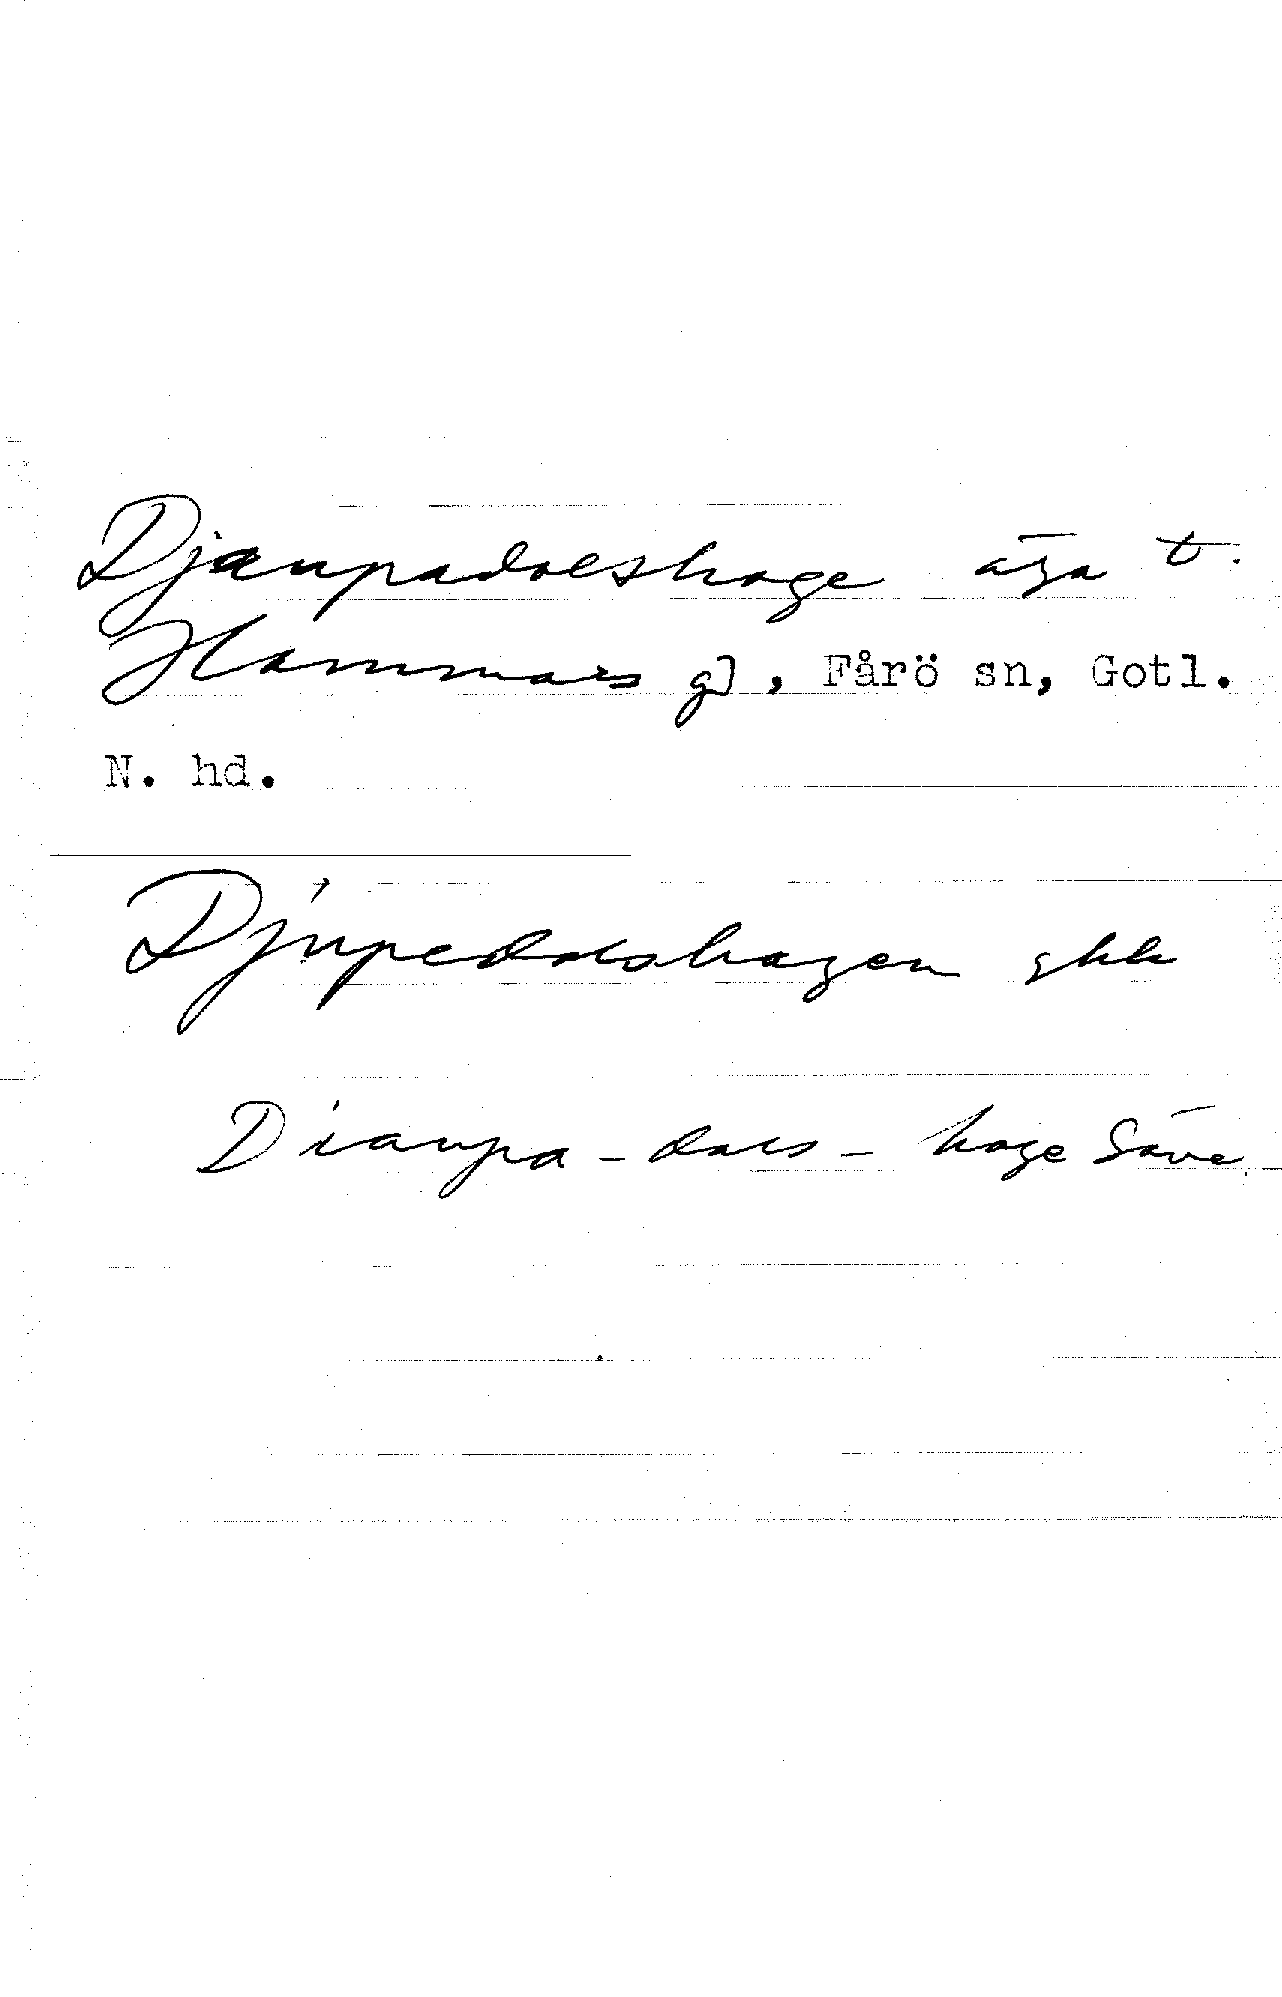 Djaupadalshage äga t.
Hammars gd, Fårö sn, Gotl.
N. hd.
Djupedalshagen gkk
Diaupa-dals-hage Säve